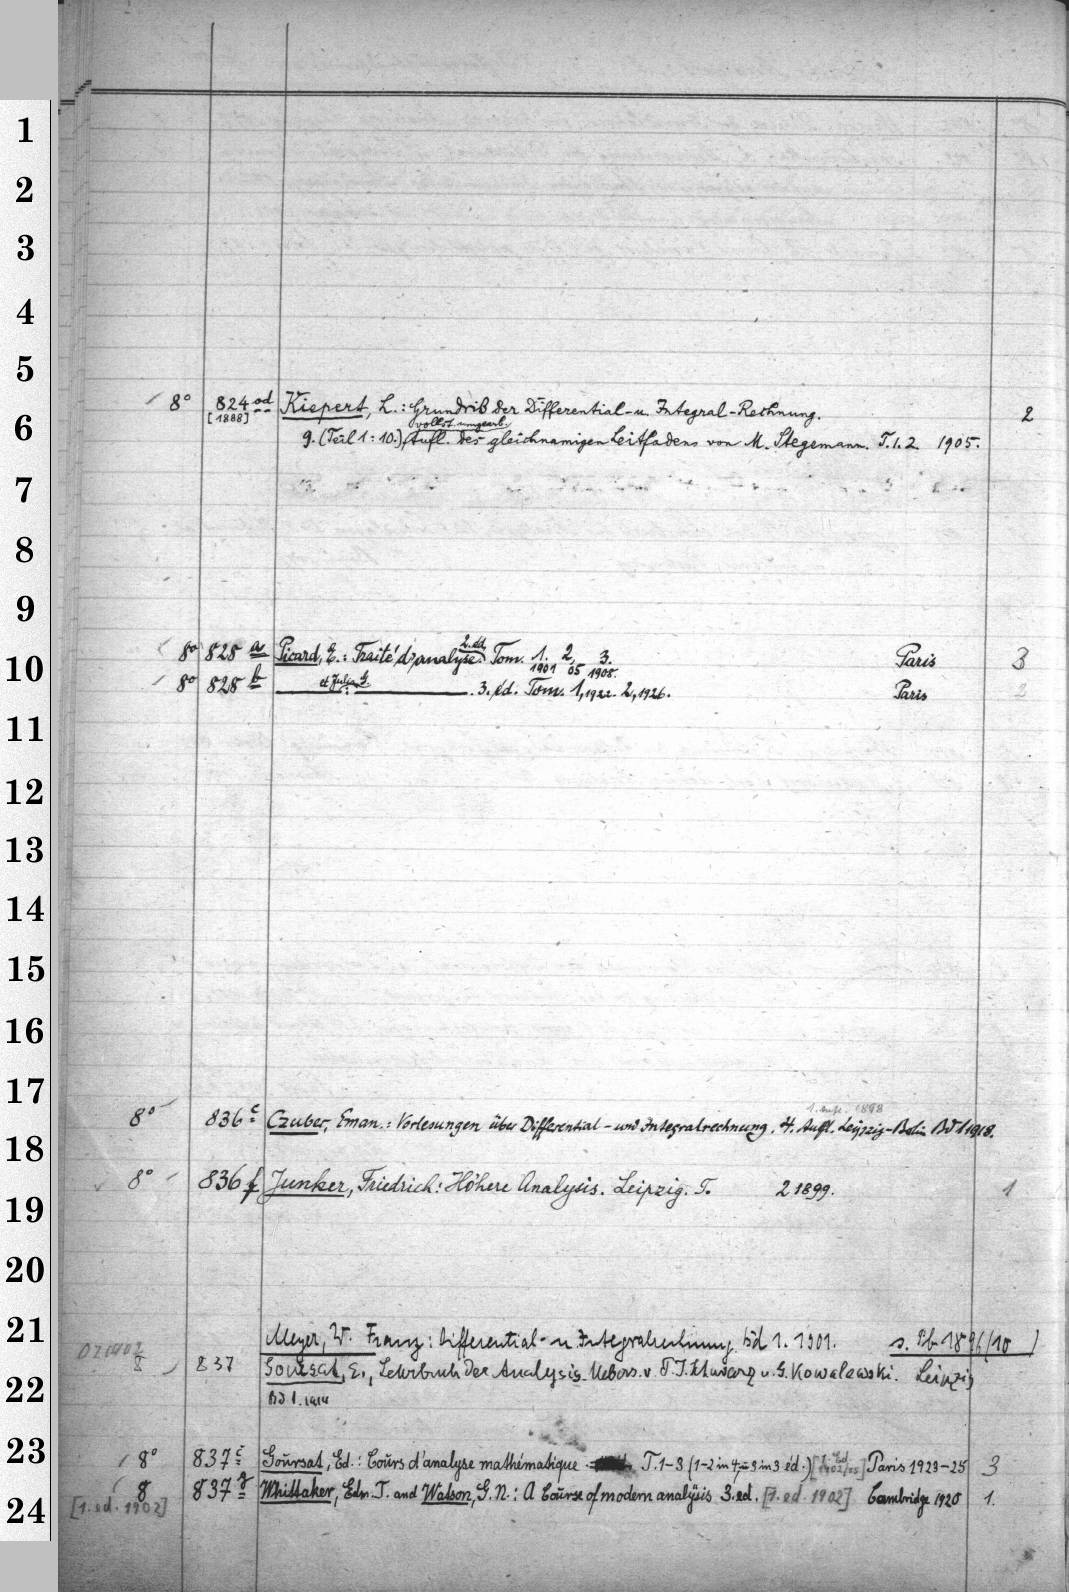 1
2
3
4
5
8° 824 od Kiepert, L.: Grundriß der Differential- u. Integral-Rechnung. 2
[1888] vollst. umgearb.
6
9. (Teil 1: 10.), Aufl. des gleichnamigen Leitfadens von M. Stegemann. T. 1. 2. 1905.
7
8
9
2. éd.
8° 828 a Picard, E.: Traité d'analyse. Tom. 1. 2 3. Paris 3
10
1901 05 1908.
et Julia, G.
8° 828 b 3. éd. Tom. 1, 1922. 2, 1926. Paris 2
11
12
13
14
15
16
17
1. Aufl. 1898
8° 836 c Czuber, Eman.: Vorlesungen über Differential- und Integralrechnung. 4. Aufl. Leipzig-Berlin Bd 1 1918.
18
8° 836 f Junker, Friedrich: Höhere Analysis. Leipzig. T. 2 1899. 1
19
20
21
Meyer, W. Franz: Differential- u. Integralrechnung Bd 1. 1901.
8 837 Goursat, E., Lehrbuch der Analysis. Uebers. v. G. Kowalewski. Leipzig
22
Bd 1. 1914
23
8° 837 c Goursat, Ed.: Cours d'analyse mathématique T. 1-3 (1-2 in 4, 3 in 3 éd.) Paris 1923-25 3
8 837 g Whittaker, Edm. T. and Watson, G. N.: A Course of modern analysis 3. ed. [1. ed. 1902] Cambridge 1920 1.
24 [1. ed. 1902]